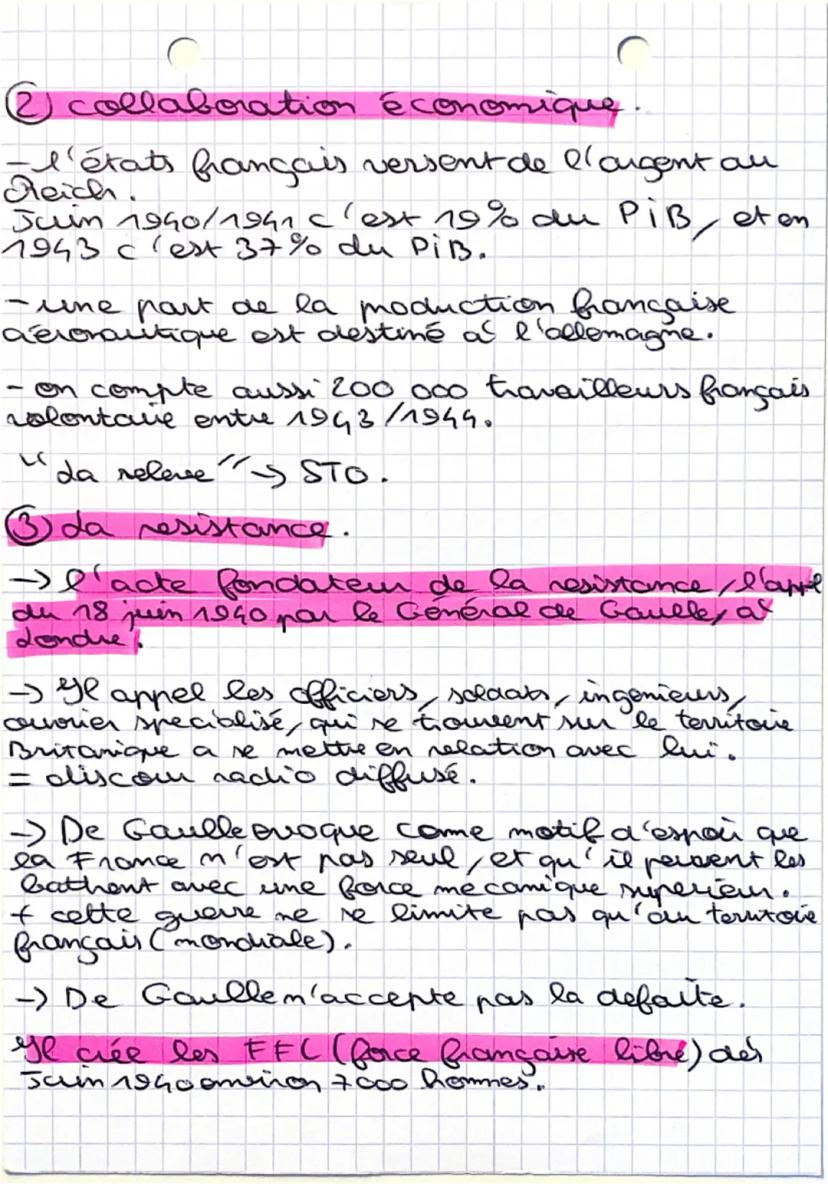 ② collaboration économique.
- l'états français versent de l'argent au
Reich.
Juin 1940/1941 c'est 19% du PiB, et en
1943 c'est 37% du PiB.
- une part de la production française
aéronautique est destiné à l'allemagne.
- on compte aussi 200 000 travailleurs français
volontaire entre 1943/1944.
"La releve" → STO.
③ La resistance.
→ l'acte fondateur de la resistance, l'appel
du 18 juin 1940 par le Général de Gaulle, à
Londre.
→ Il appel les officiers, soldats, ingenieurs,
ouvrier specialisé, qui se trouvent sur le territoire
Britanique a se mettre en relation avec lui.
= discour radio diffusé.
→ De Gaulle evoque come motif d'espoir que
la France n'est pas seul, et qu'il peuvent les
batthent avec une force mecanique superieur.
+ cette guerre ne se limite pas qu'au territoire
français (mondiale).
→ De Gaulle n'accepte pas la defaite.
Il crée les FFL (force française libre) dés
Juin 1940 environ 7000 hommes.